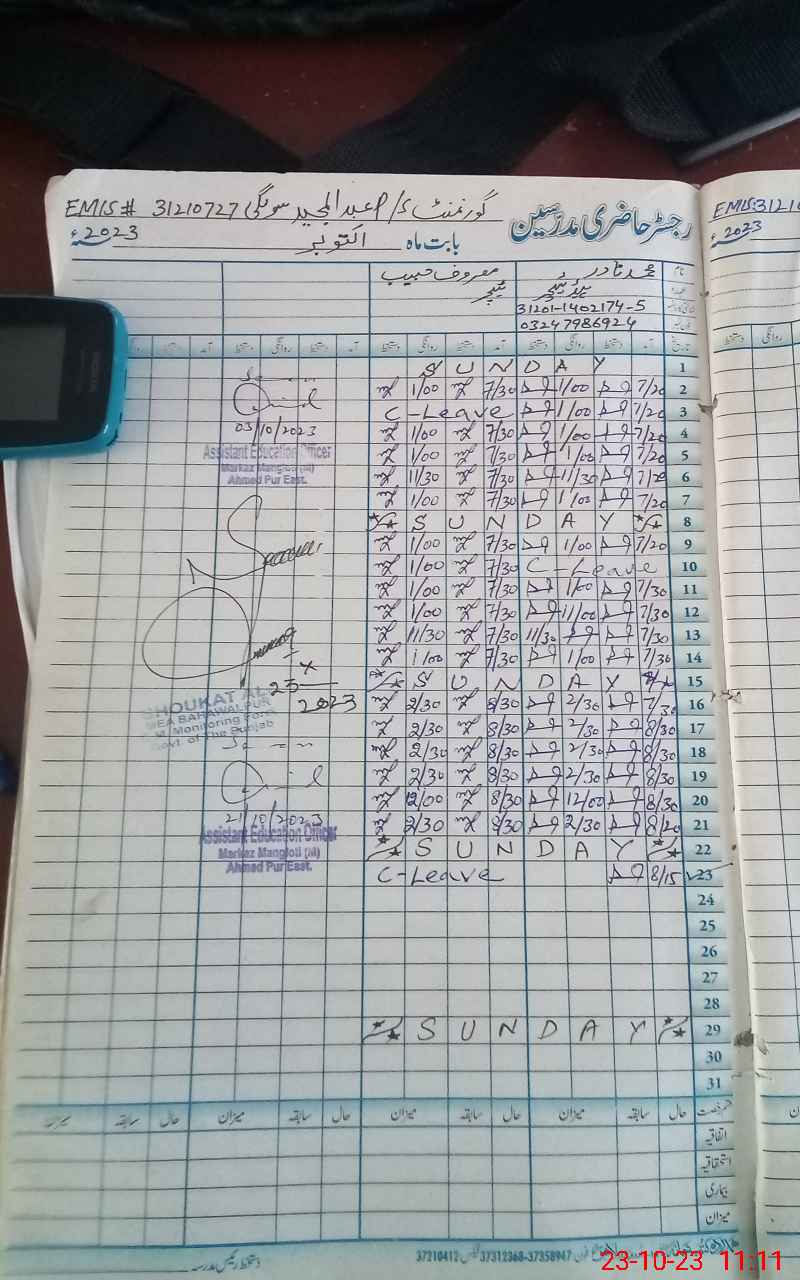 EMIS# 31210727 گورنمنٹ P/S عبدالمجید سونگی
رجسٹر حاضری مدرسین
بابت ماہ اکتوبر 2023ء
EMIS 3121
2023ء
نام محمد نادر معروف حبیب
ہیڈ ٹیچر ٹیچر
31201-1402174-5
03247986924
تاریخ آمد دستخط روانگی دستخط آمد دستخط روانگی دستخط آمد دستخط روانگی دستخط آمد روانگی
1 SUNDAY
2 7/20 1/00 7/30 1/00
3 7/20 1/00 C-Leave
4 7/20 1/00 7/30 1/00
5 7/20 1/00 7/30 1/00
6 7/20 11/30 7/30 11/30
7 7/20 1/00 7/30 1/00
8 SUNDAY
9 7/20 1/00 7/30 1/00
10 C-Leave 7/30 1/00
11 7/30 1/00 7/30 1/00
12 7/30 11/00 7/30 1/00
13 7/30 11/30 7/30 11/30
14 7/30 1/00 7/30 1/00
15 SUNDAY
16 7/30 2/30 8/30 2/30
17 8/30 2/30 8/30 2/30
18 8/30 2/30 8/30 2/30
19 8/30 2/30 8/30 2/30
20 8/30 12/00 8/30 12/00
21 8/20 2/30 8/30 2/30
22 SUNDAY
23 8/15 C-Leave
24
25
26
27
28
29 SUNDAY
30
31
03/10/2023
Assistant Education Officer
Markaz Mangloti (M)
Ahmed Pur East.
23 X 2023
SHOUKAT ALI
MEA BAHAWALPUR
Monitoring Force
Govt. of The Punjab
21/10/2023
Assistant Education Officer
Markaz Mangloti (M)
Ahmed Pur East.
قسم رخصت حال سابقہ میزان حال سابقہ میزان حال سابقہ میزان حال سابقہ میزان
اتفاقیہ
استحقاقیہ
بیماری
میزان
دستخط رئیس مدرسہ
37210412 37312368-37358947
23-10-23 11:11